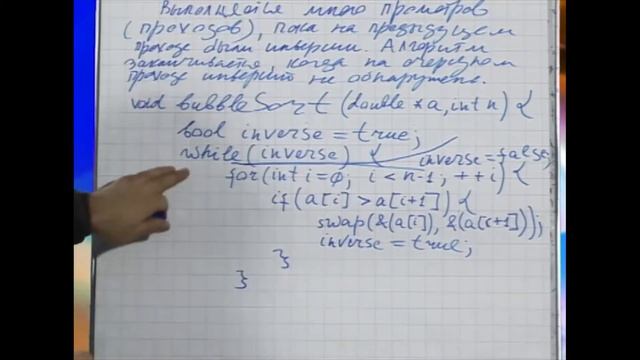 Выполняется много просмотров
(проходов), пока на предыдущем
проходе были инверсии. Алгоритм
заканчивается, когда на очередном
проходе инверсий не обнаружено.
void bubbleSort (double *a, int n) {
bool inverse = true;
while (inverse) { inverse = false;
for(int i=0; i < n-1; ++i) {
if (a[i] > a[i+1]) {
swap(&(a[i]), &(a[i+1]));
inverse = true;
}
}